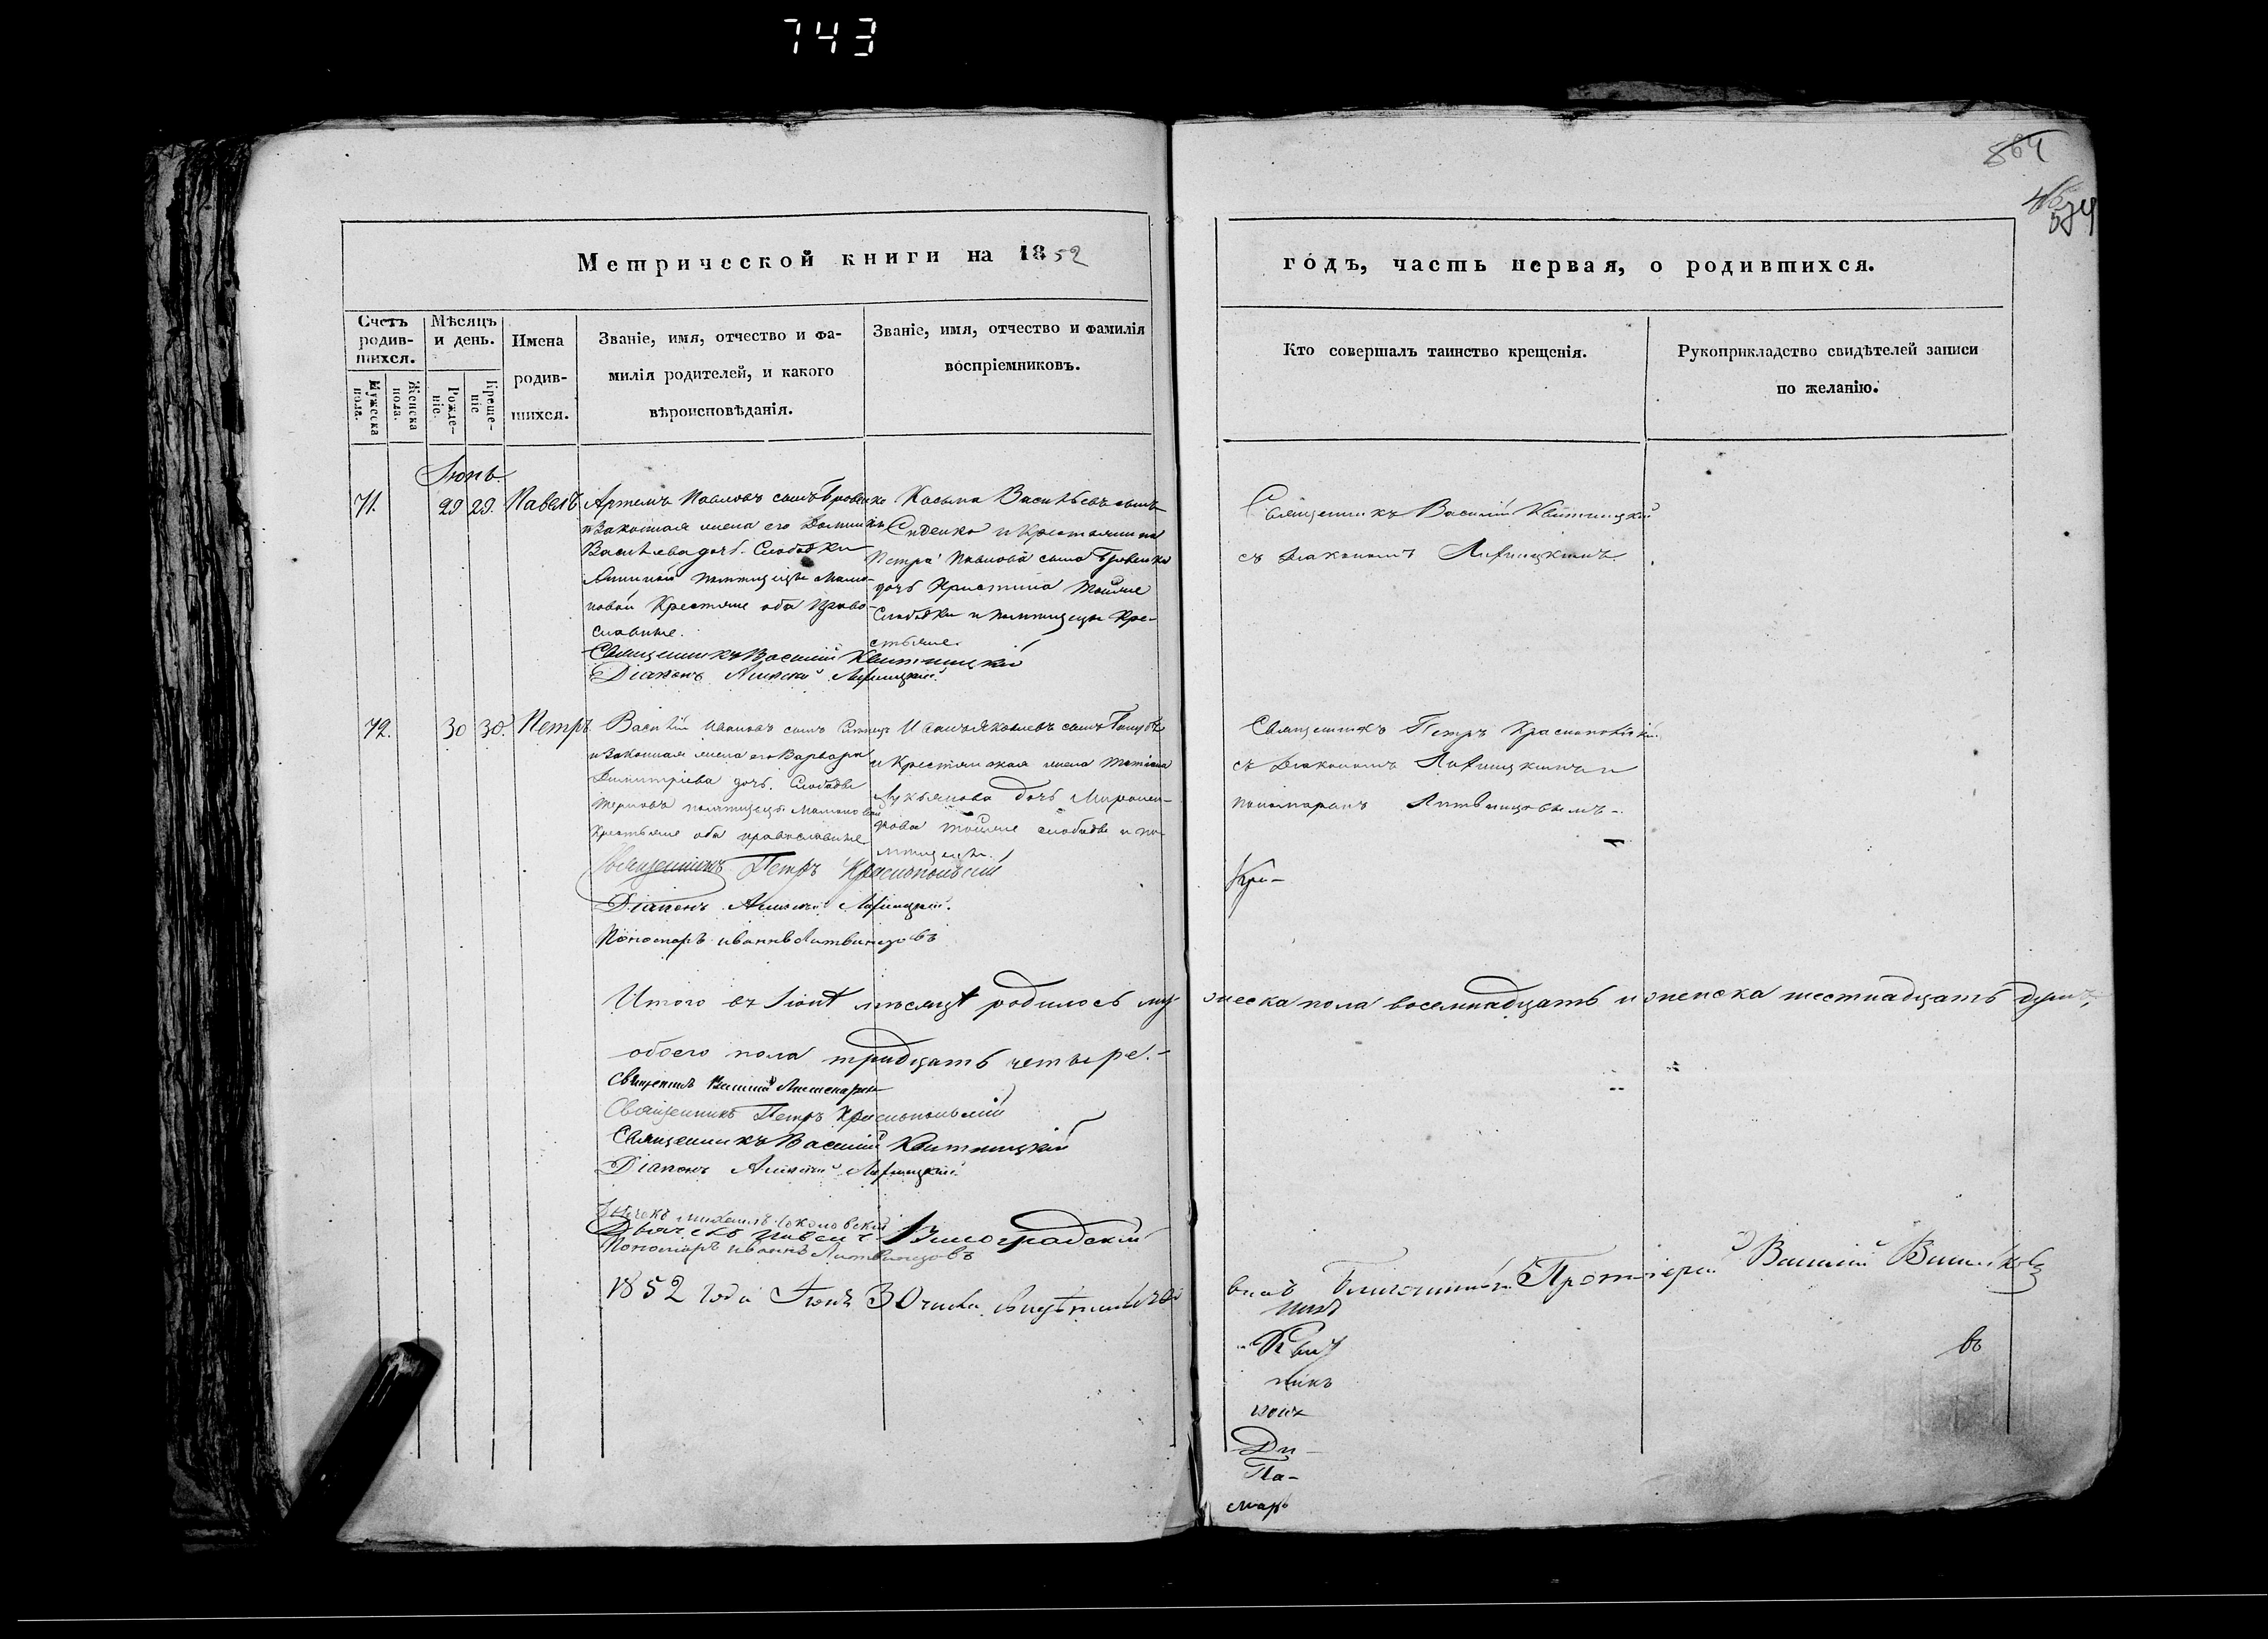 743
864
574
Метрической книги на 1852
годъ, часть первая, о родившихся.
Счетъ родив-шихся.
Мужеска пола.
Женска пола.
Мѣсяцъ и день.
Рожде-ніе.
Креще-ніе
Имена
родив-
шихся.
Званіе, имя, отчество и фа-
милія родителей, и какого
вѣроисповѣданія.
Званіе, имя, отчество и фамилія
воспріемниковъ.
Кто совершалъ таинство крещенія.
Рукоприкладство свидѣтелей записи
по желанію.
Іюнь
71. 29 29. Павелъ
Артемъ Павловъ сынъ Бровенко
и Законная жена его
Васильева дочь. Слободки
помѣщицы Мамо-
новой Крестьяне оба Право-
славные.
Священникъ Василій Квитницкій
Діаконъ Алексѣй
Косьма Васильевъ сынъ
и Крестьянина
Петра Павлова сына Бровенка
дочь Христина тойже
Слободки и помѣщицы Кре-
стьяне.
Священникъ Василій Квитницкій
съ Діакономъ
72. 30 30. Петръ
Василій Ивановъ сынъ
и Законная жена его Варвара
Димитріева дочь. Слободы
Терновъ помѣщицы Мамоновой
Крестьяне оба православные
Священникъ Петръ Краснопольскій
Діаконъ Алексѣй
Пономарь Иванъ Литвинцовъ
Иванъ Яковлевъ сынъ
и Крестьянская жена Татіана
Лукьянова дочь Миронен-
кова тойже слободы и по-
мѣщицы.
Священникъ Петръ Краснопольскій
съ Діакономъ и
пономаремъ Литвинцовымъ.
Кре-
Итого въ Іюнѣ мѣсяцѣ родилось му жеска пола восемнадцать и женска шестнадцать душъ,
обоего пола тридцать четыре.
Священникъ Василій
Священникъ Петръ Краснопольскій
Священникъ Василій Квитницкій
Діаконъ Алексѣй
Дьячекъ Михаилъ Соколовскій
Дьячекъ Виноградскій
Пономарь Иванъ Литвинцовъ
1852 года Іюня 30 числа свидѣтельство
валъ Благочинный Протоіерей Василій
никъ
никъ
въ
Ди-
Па-
марь